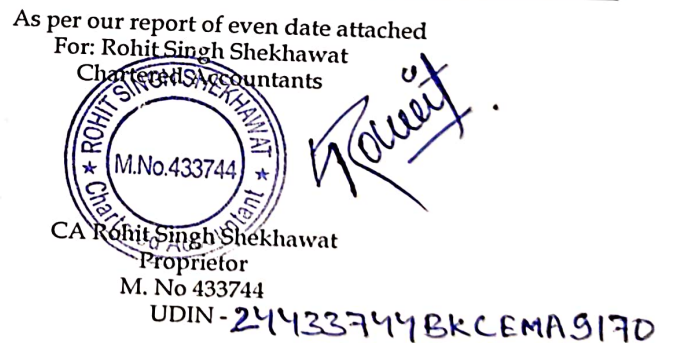 As per our report of even date attached
For: Rohit Singh Shekhawat
Chartered Accountants
ROHIT SINGH SHEKHAWAT
M.No.433744
Chartered Accountant
CA Rohit Singh Shekhawat
Proprietor
M. No 433744
UDIN - 24433744BKCEMA9170